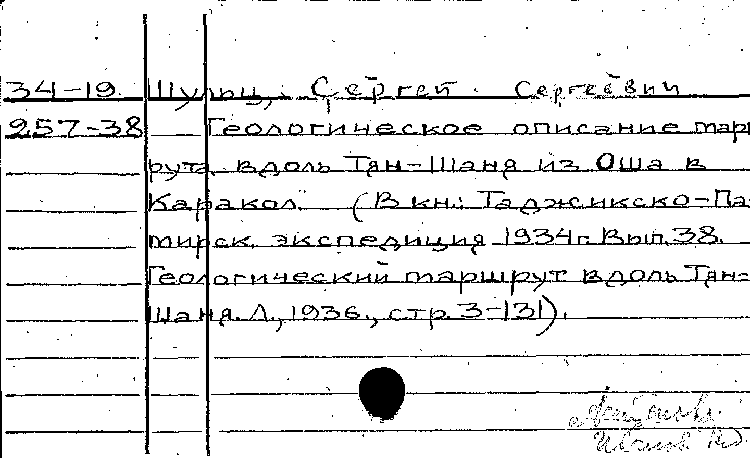 34-19. Шульц, Сергей Сергеевич
257-38 Геологическое описание марш-
рута вдоль Тян-Шаня из Оша в
Каракол. (В кн: Таджикско-Па-
мирск. экспедиция 1934г. Вып. 38.
Геологический маршрут вдоль Тян-
Шаня. Л., 1936., стр. 3-131).